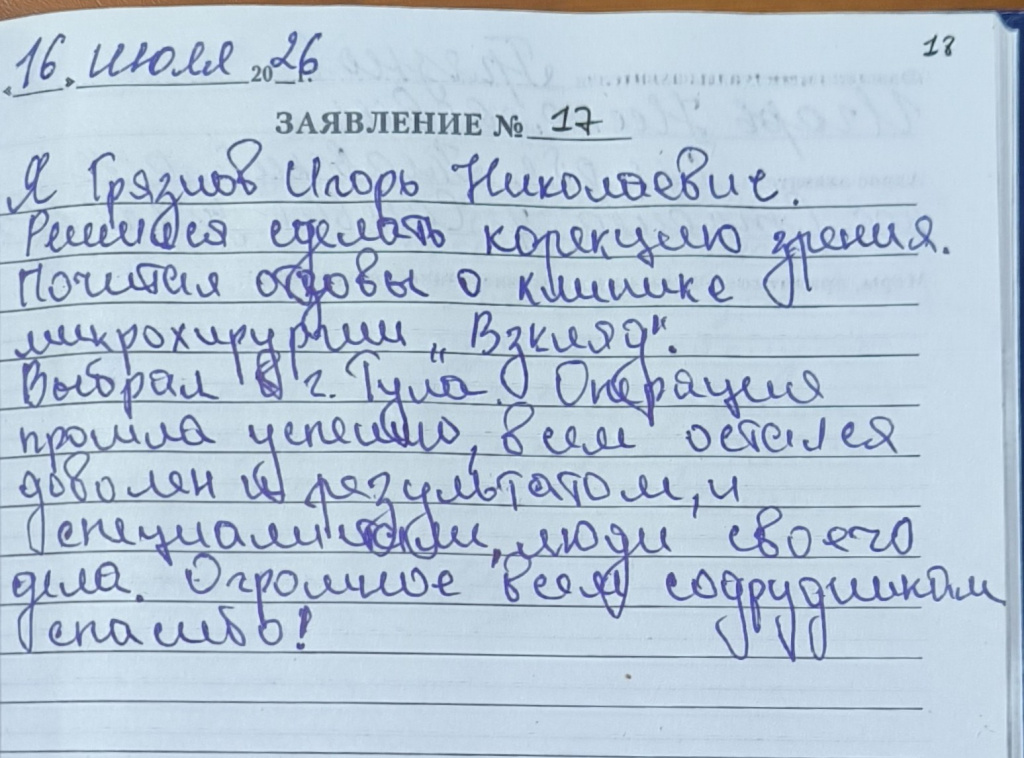 18
„16" июля 2026 г.
ЗАЯВЛЕНИЕ № 17
Я Грязнов Игорь Николаевич.
Решился сделать корекцию зрения.
Почитал отзовы о клинике
микрохирургии „Взкляд".
Выбрал в г. Тула. Операция
прошла успешно, всем остался
доволен и результатом, и
специалистами, люди своего
дела. Огромное всем содрудникам
спасибо!